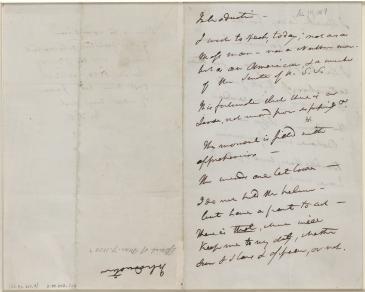 Introduction —
I wish to speak, today, not as a
Mass man — nor a Northern man.
but as an American & a member
of the Senate of U. S.
It is fortunate that there is a
Senate, not moved from
The moment is filled with
apprehensions —
The winds are let loose —
I do not hold the helm —
but have a part to act —
There is that, which will
Keep me to my duty, whether
Sun & Stars appear, or not.
Introduction
Speech of Mar. 7. 1850